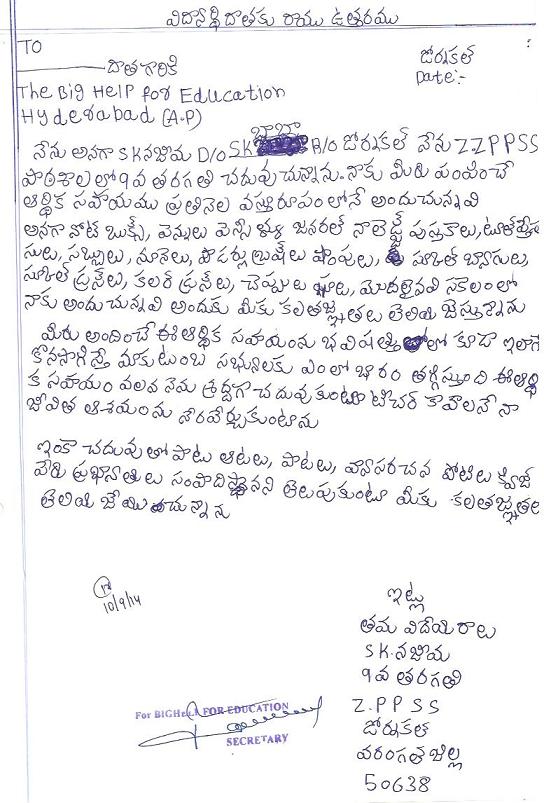 విద్యార్థి దాతకు రాయు ఉత్తరము
TO
జోరుకల్
Date:-
దాత గారికి
The Big Help for Education
Hyderabad (A.P)
నేను అనగా SK నజీమ D/o SK బాబా R/o జోరుకల్ నేను Z.Z.P.P.S.S
పాఠశాలలో 9వ తరగతి చదువుచున్నాను. నాకు మీరు పంపించే
ఆర్థిక సహాయము ప్రతినెల వస్తు రూపంలోనే అందుచున్నవి
అనగా నోట్ బుక్స్, పెన్నులు పెన్సిళ్ళు జనరల్ నాలెడ్జ్ పుస్తకాలు, టూత్ పేస్టు
సులు, సబ్బులు, నూనెలు, పౌడర్లు బ్రుష్‌లు షాంపులు, స్కూల్ బ్యాగులు,
స్కూల్ డ్రస్‌లు, కలర్ డ్రస్‌లు, చెప్పులు షూలు, మొదలైనవి సకాలంలో
నాకు అందుచున్నవి అందుకు మీకు కృతజ్ఞతలు తెలియజేస్తున్నాను
మీరు అందించే ఈ ఆర్థిక సహాయంను భవిష్యత్తులో కూడా ఇలాగే
కొనసాగిస్తే మా కుటుంబ సభ్యులకు ఎంతో భారం తగ్గిస్తుంది ఈ ఆర్థి
క సహాయం వలన నేను శ్రద్దగా చదువుకుంటూ టీచర్ కావాలనే నా
జీవిత ఆశయంను నెరవేర్చుకుంటాను
ఇంకా చదువుతో పాటు ఆటలు, పాటలు, వ్యాసరచన పోటీలు క్విజ్
పేరు ప్రఖ్యాతులు సంపాదిస్తానని తెలుపుకుంటూ మీకు కృతజ్ఞతలు
తెలియజేయుచున్నాను
10/9/14
ఇట్లు
తమ విదేయురాలు
SK.నజీమ
9వ తరగతి
Z.P.P.S.S
జోరుకల్
వరంగల్ జిల్లా
50638
For BIG HeLP FOR EDUCATION
SECRETARY